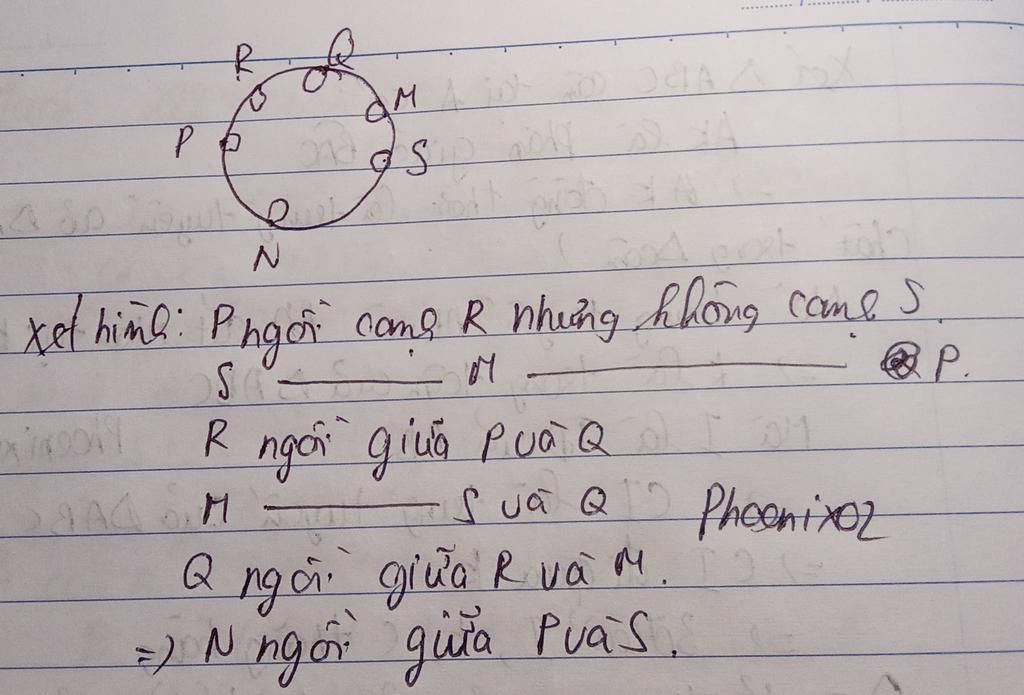 R Q
M
P S
N
Xét hình: P ngồi cạnh R nhưng không cạnh S.
S ——— M ——— P.
R ngồi giữa P và Q
M ——— S và Q Phoenix02
Q ngồi giữa R và M.
=) N ngồi giữa P và S.